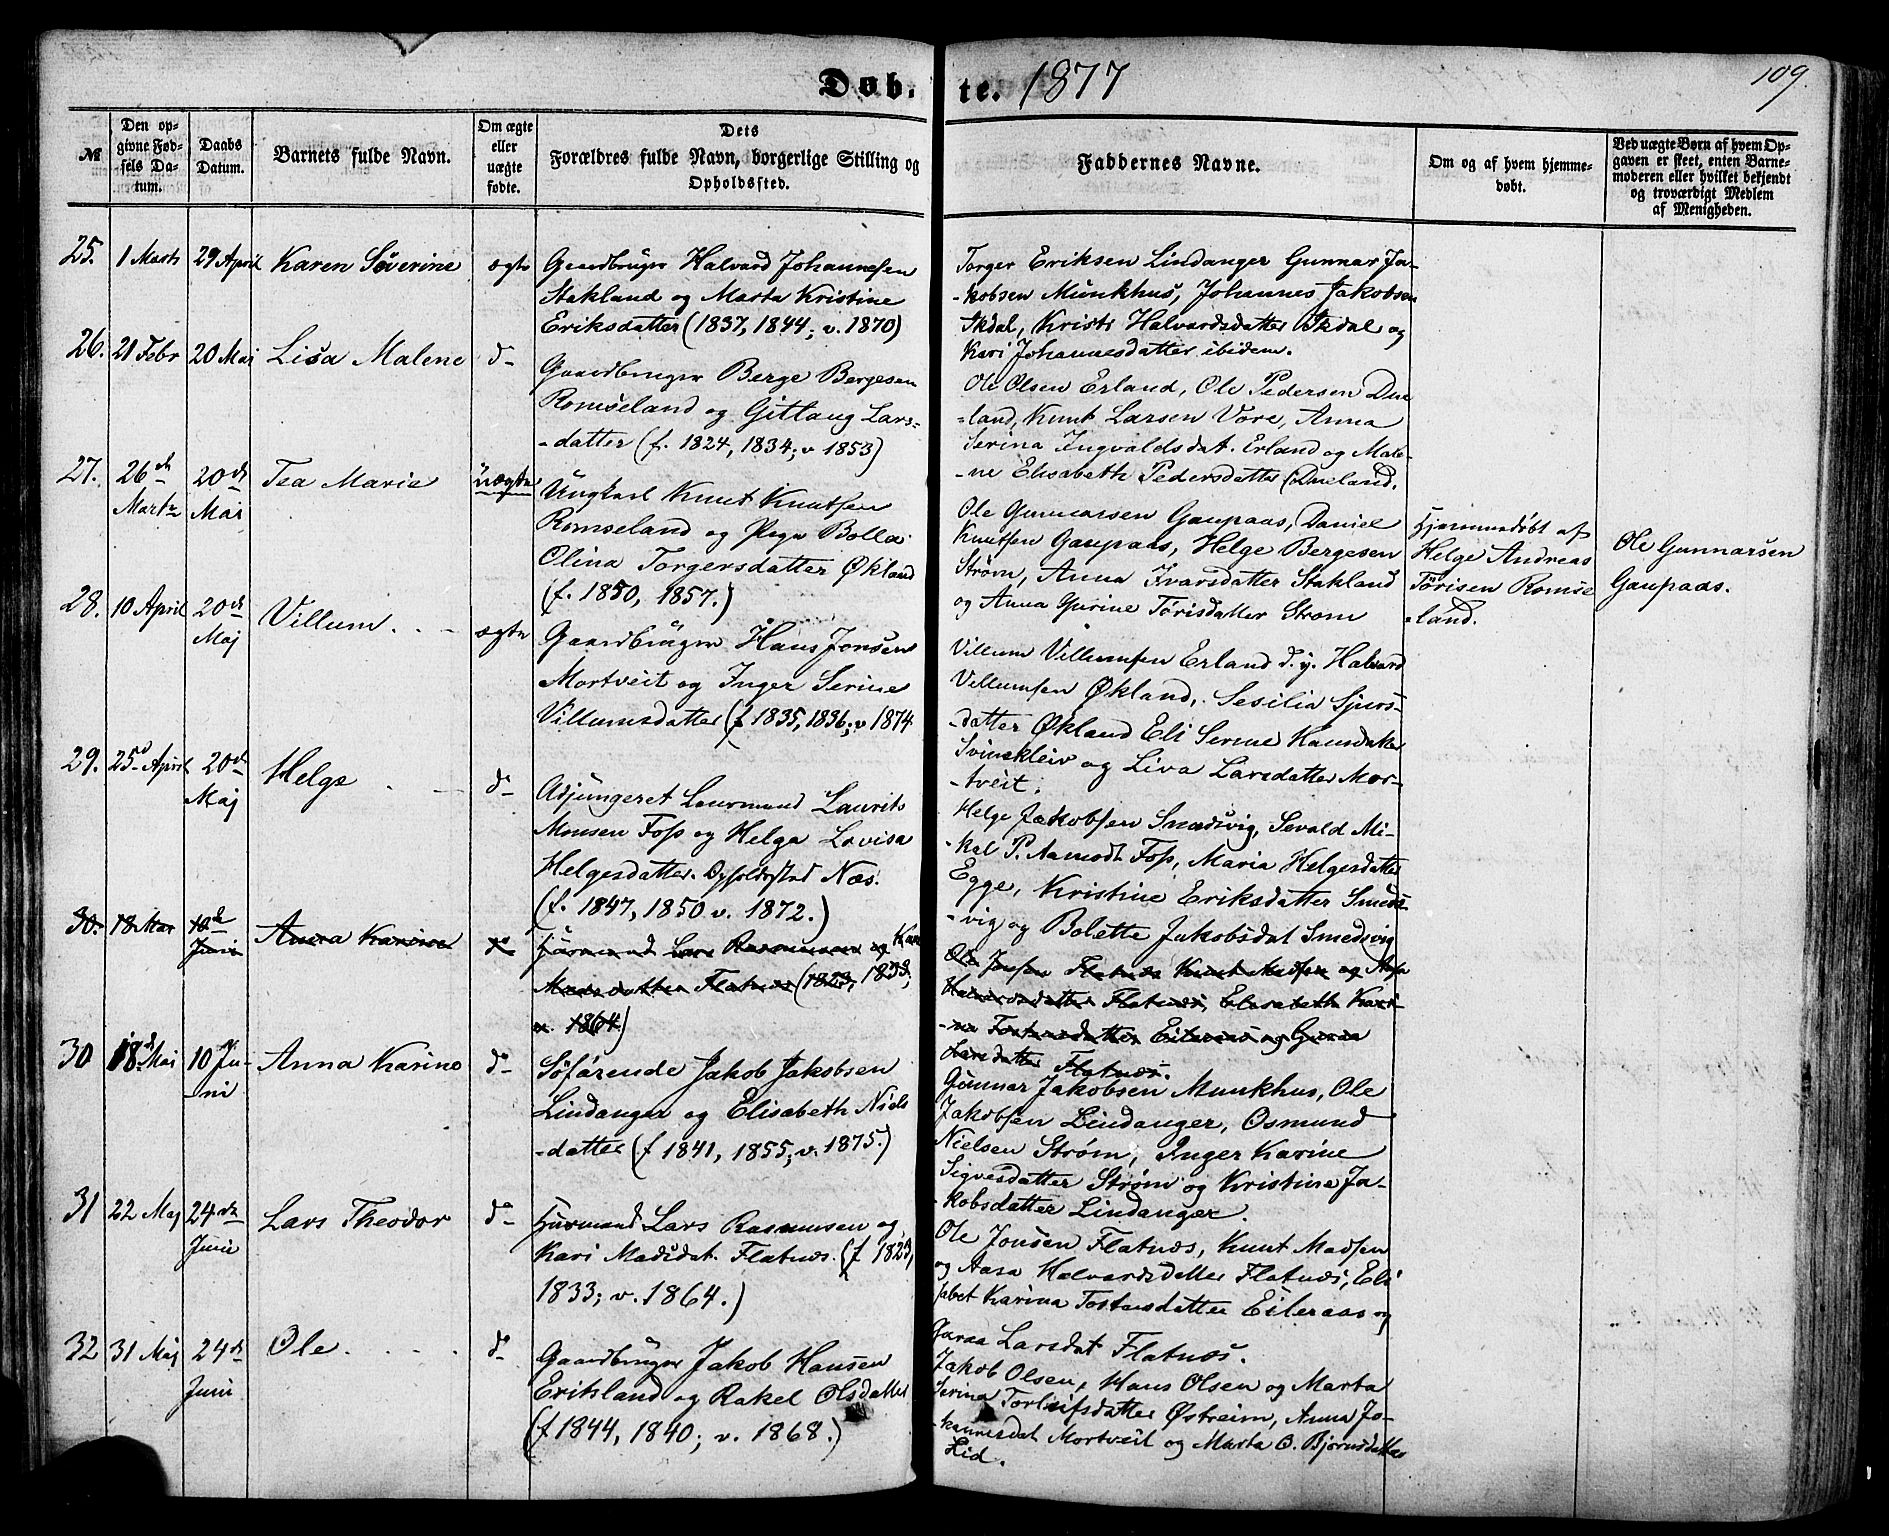 Døb.
te. 1877
109.
№
Den op-
givne Fød-
sels Da-
tum.
Daabs
Datum.
Barnets fulde Navn.
Om ægte
eller
uægte
fødte.
Dets
Forældres fulde Navn, borgerlige Stilling og
Opholdssted.
Faddernes Navne.
Om og af hvem hjemme-
døbt.
Ved uægte Børn af hvem Op-
gaven er skeet, enten Barne-
moderen eller hvilket bekjendt
og troværdigt Medlem
af Menigheden.
25. 1 Marts 29 April Karen Severine ægte
Gaardbruger Halvard Johannesen
Stakland og Marta Kristine
Eriksdatter (1837, 1844; v. 1870)
Torger Eriksen Lindanger Gunnar Ja-
-kobsen Munkhus, Johannes Jakobsen
Ikdal, Kristi Halvardsdatter Ikdal og
Kari Johannesdatter ibidem.
26. 21 Febr 20 Mai Lisa Malene do
Gaardbruger Berge Bergesen
Romseland og Gitlaug Lars-
-datter (f. 1824, 1834; v 1853)
Ole Olsen Erland, Ole Pedersen Due
-land, Knut Larsen Vore, Anna
Serina Ingvaldsdat. Erland og Male-
-ne Elisabeth Pedersdatter Dueland.
27. 26de Marts 20de Mai Tea Marie uægte
Ungkarl Knut Knutsen
Romseland og Pige Bolla
Olina Torgersdatter Økland
(f. 1850, 1857.)
Ole Gunnarsen Gaupaas, Daniel
Knutsen Gaupaas, Helge Bergesen
Strøm, Anna Ivarsdatter Stakland
og Anna Gurine Tørisdatter Strøm
Hjemmedøbt af
Helge Andreas
Tørisen Romse
-land.
Ole Gunnarsen
Gaupaas.
28. 10 April 20de Maj Villum ægte
Gaardbruger Hans Jonsen
Mortveit og Inger Serine
Villumsdatter (f 1835, 1836; v 1874
Villum Villumsen Erland d. y. Halvard
Villumsen Økland, Sesilia Sjurs-
-datter Økland Eli Serine Hansdatter
Svinekleiv og Liva Larsdatter Mor-
-tveit.
29. 25de April 20de Maj Helge do
Adjungeret Lensmand Laurits
Monsen Foss og Helga Lovisa
Helgesdatter. Opholdssted Næs.
(f. 1847, 1850 v. 1872.)
Helge Jakobsen Smedsvig, Sevald Mi-
-kal P. Aamodt Foss, Maria Helgesdatter
Egge, Kristine Eriksdatter Smeds-
-vig og Bolette Jakobsdat Smedsvig
30. 18 Mai 10de Juni Anna Karine do
Husmand Lars Rasmussen og Kari
Madsdatter Flatnæs (1823, 1833,
v. 1864)
Ole Jonsen Flatnæs Knut Madsen og Aasa
Halvardsdatter Flatnæs, Elisabeth Kari-
-na Tostensdatter Eileraas og Guraa
Larsdatter Flatnæs.
30 18de Mai 10 Ju-
-ni Anna Karine do
Søfarende Jakob Jakobsen
Lindanger og Elisabeth Niels
-datter (f 1841, 1855; v. 1875.)
Gunnar Jakobsen Munkhus, Ole
Jakobsen Lindanger, Osmund
Nielsen Strøm, Inger Karine
Sigvesdatter Strøm og Kristine Ja-
-kobsdatter Lindanger.
31 22 Maj 24de Juni Lars Theodor do
Husmand Lars Rasmussen og
Kari Madsdat. Flatnæs. (f 1823,
1833; v. 1864.)
Ole Jonsen Flatnæs, Knut Madsen
og Aasa Halvardsdatter Flatnæs, Eli
sabet Karina Tostensdatter Eileraas og
Guraa Larsdat Flatnæs.
32 31 Maj 24de Juni Ole do
Gaardbruger Jakob Hansen
Eriksland og Rakel Olsdatter
(f 1844, 1840; v. 1868.)
Jakob Olsen, Hans Olsen og Marta
Serina Torleifsdatter Østreim, Anna Jo-
-hannesdat Mortveit og Marta O. Bjørnsdatter
Lid.